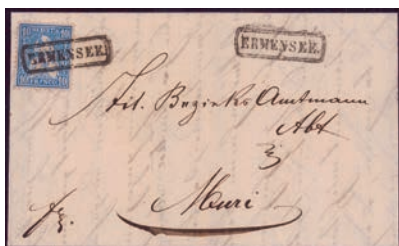 ERMENSEE.
ERMENSEE.
Tit. Bezirks Amtmann
Abt
Muri
fr.